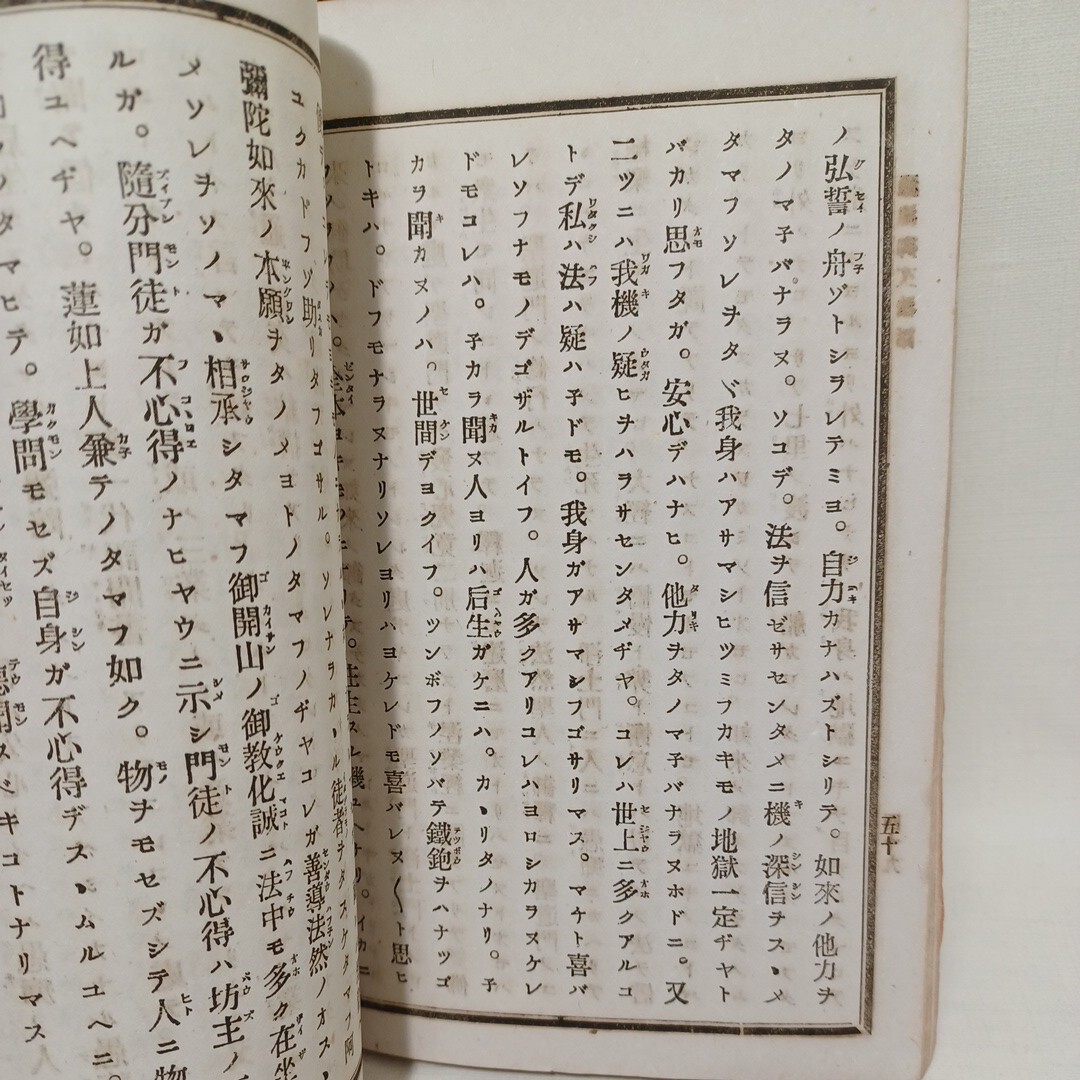 ノ弘誓ノ舟ヅトシラレテミヨ。自力カナハズトシリテ。如來ノ他力ヲ
タノマ子バナラヌ。ソコデ。法ヲ信ゼサセンタメニ機ノ深信ヲスヽメ
タマフソレヲタヾ我身ハアサマシヒツミフカキモノ地獄一定ヂヤト
バカリ思フタガ。安心デハナヒ。他力ヲタノマ子バナラヌホドニ。又
二ツニハ我機ノ疑ヒヲハラサセンタメヂヤ。コレハ世上ニ多クアルコ
トデ私ハ法ハ疑ハ子ドモ。我身ガアサマシフゴサリマス。マケト喜バ
レソフナモノデゴザルトイフ。人ガ多クアリコレハヨロシカラヌケレ
ドモコレハ。子カラ聞ヌ人ヨリハ后生ガケニハ。カヽリタノナリ。子
カラ聞カヌノハ。世間デヨクイフ。ツンボフノソバテ鐵鉋ヲハナツゴ
トキハ。ドフモナラヌナリソレヨリハヨケレドモ喜バレヌ〱ト思ヒ
五十九
ユクカドフゾ助リタフゴサル。ソレナラカヽル徒者ヲタスケタマフ阿
彌陀如來ノ本願ヲタノメヨトノタマフノヂヤコレガ善導法然ノオスヽ
メソレヲソノマヽ相承シタマフ御開山ノ御教化誠ニ法中モ多ク在
ルガ。隨分門徒ガ不心得ノナヒヤウニ示シ門徒ノ不心得ハ坊主ノ
得ユヘヂヤ。蓮如上人兼テノタマフ如ク。物ヲモセズシテ人ニ物
タマヒテ。學問モセズ自身ガ不心得デスヽムルユヘニ。
聞スベキコトナリマス